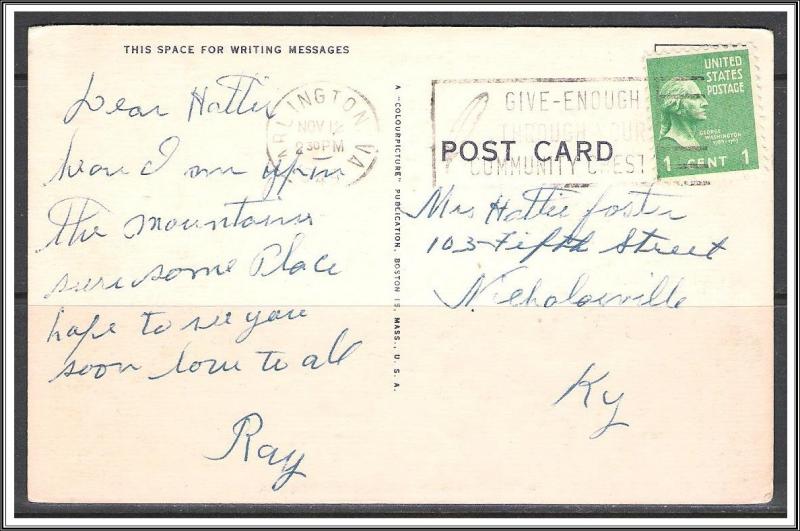 THIS SPACE FOR WRITING MESSAGES
Dear Hattie
I am up in
the mountains
sure some Place
hope to see you
soon love to all
Ray
A "COLOURPICTURE" PUBLICATION, BOSTON 15, MASS., U. S. A.
ARLINGTON, VA
NOV 12
2 30 PM
GIVE-ENOUGH
THROUGH YOUR
COMMUNITY CHEST
UNITED
STATES
POSTAGE
GEORGE
WASHINGTON
1 CENT 1
POST CARD
Mrs Hattie Foster
103 Fifth Street
Nicholasville
Ky